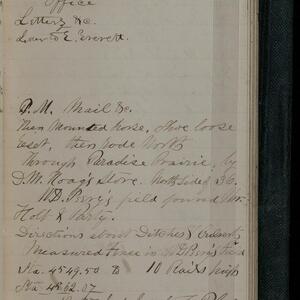 Office
Letters &c.
Laws E. Everett.
P.M. Mail &c.
Then Mounted horse, drove loose
east, then rode North
through Paradise Prairie, by
D.M. Hoag's store. North side of 36.
W.D. Perry's field found Mr.
Holt & Party.
Directions about Ditches, culverts
Measured fence in W.D. Perry's field
Sta. 4549.50 to 10 Rails high
Sta. 4562.07